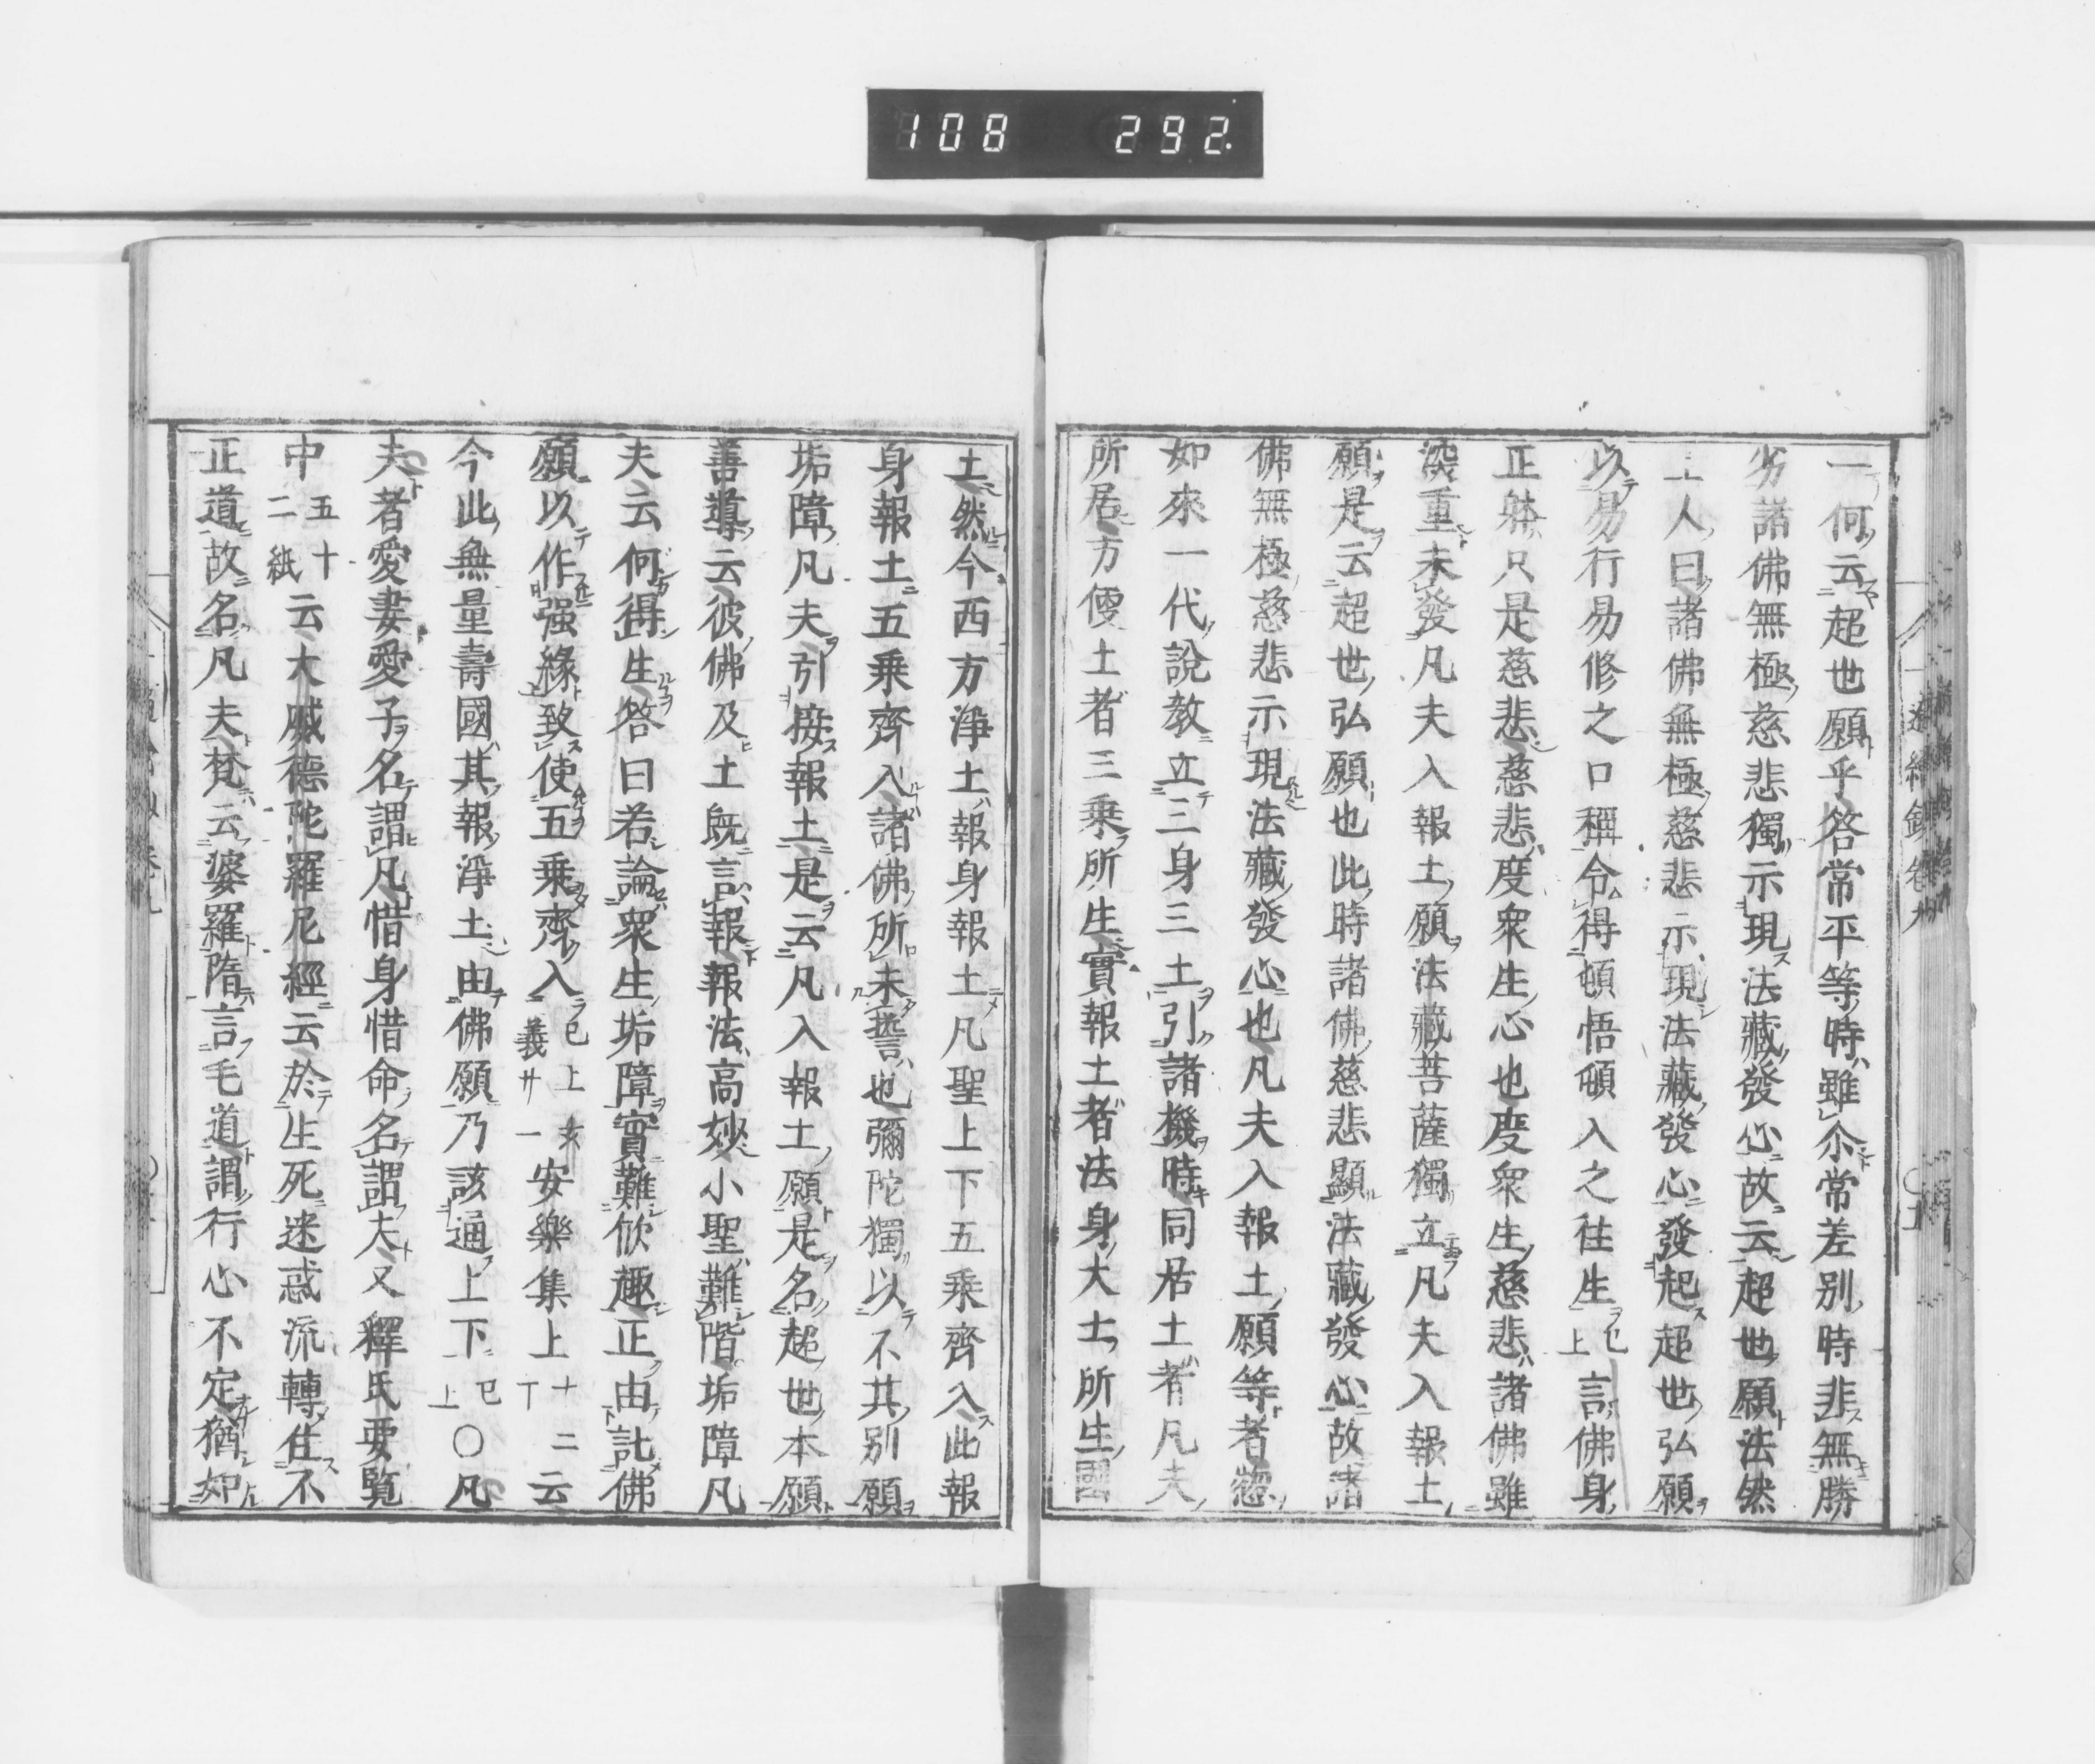 108 292
一何云超也願乎答常平等時雖尒常差別時非無勝
劣諸佛無極慈悲獨示現法藏發心故云超也願法然
上人曰諸佛無極慈悲示現法藏發心發起超也弘願
以易行易修之口稱令得頓悟頓入之往生已上言佛身
正躰只是慈悲慈悲度衆生心也度衆生慈悲諸佛雖
深重未發凡夫入報土願法藏菩薩獨立凡夫入報土
願是云超世弘願也此時諸佛慈悲顯法藏發心故諸
佛無極慈悲示現法藏發心也凡夫入報土願等者惣
如來一代說教立三身三土引諸機時同居土者凡夫
所居方便土者三乘所生實報土者法身大士所生國
土然今西方淨土報身報土凡聖上下五乘齊入此報
身報土五乘齊入諸佛所未誓也彌陀獨以不共別願
垢障凡夫引接報土是云凡入報土願是名超世本願
善導云彼佛及土既言報報法高妙小聖難階垢障凡
夫云何得生答曰若論衆生垢障實難欣趣正由託佛
願以作强緣致使五乘齊入已上玄義廿一安樂集上十二丁云
今此無量壽國其報淨土由佛願乃該通上下已上〇凡
夫者愛妻愛子名謂凡惜身惜命名謂夫又釋氏要覽
中五十二紙云大威德陀羅尼經云於生死迷惑流轉住不
正道故名凡夫梵云婆羅隋言毛道謂行心不定猶如